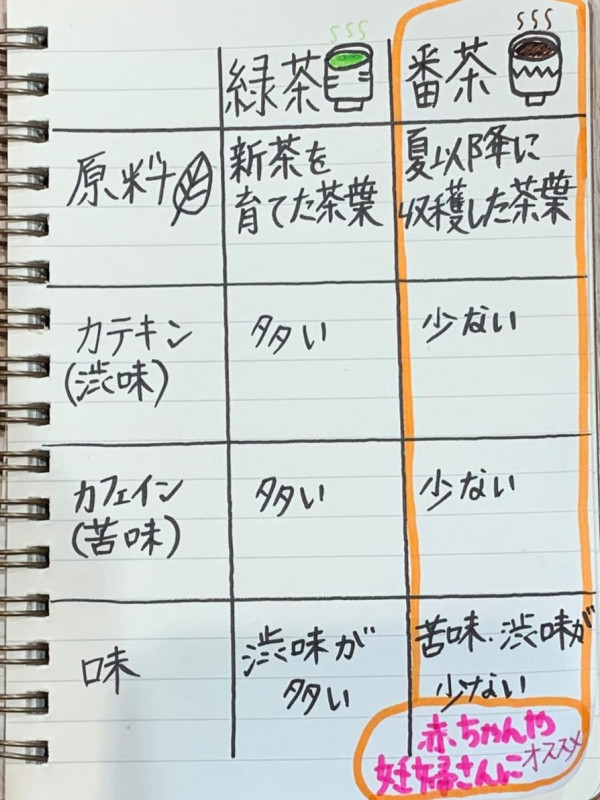 緑茶
番茶
原料
新茶を
育てた茶葉
夏以降に
収穫した茶葉
カテキン
(渋味)
多い
少ない
カフェイン
(苦味)
多い
少ない
味
渋味が
多い
苦味、渋味が
少ない
赤ちゃんや
妊婦さんに
オススメ